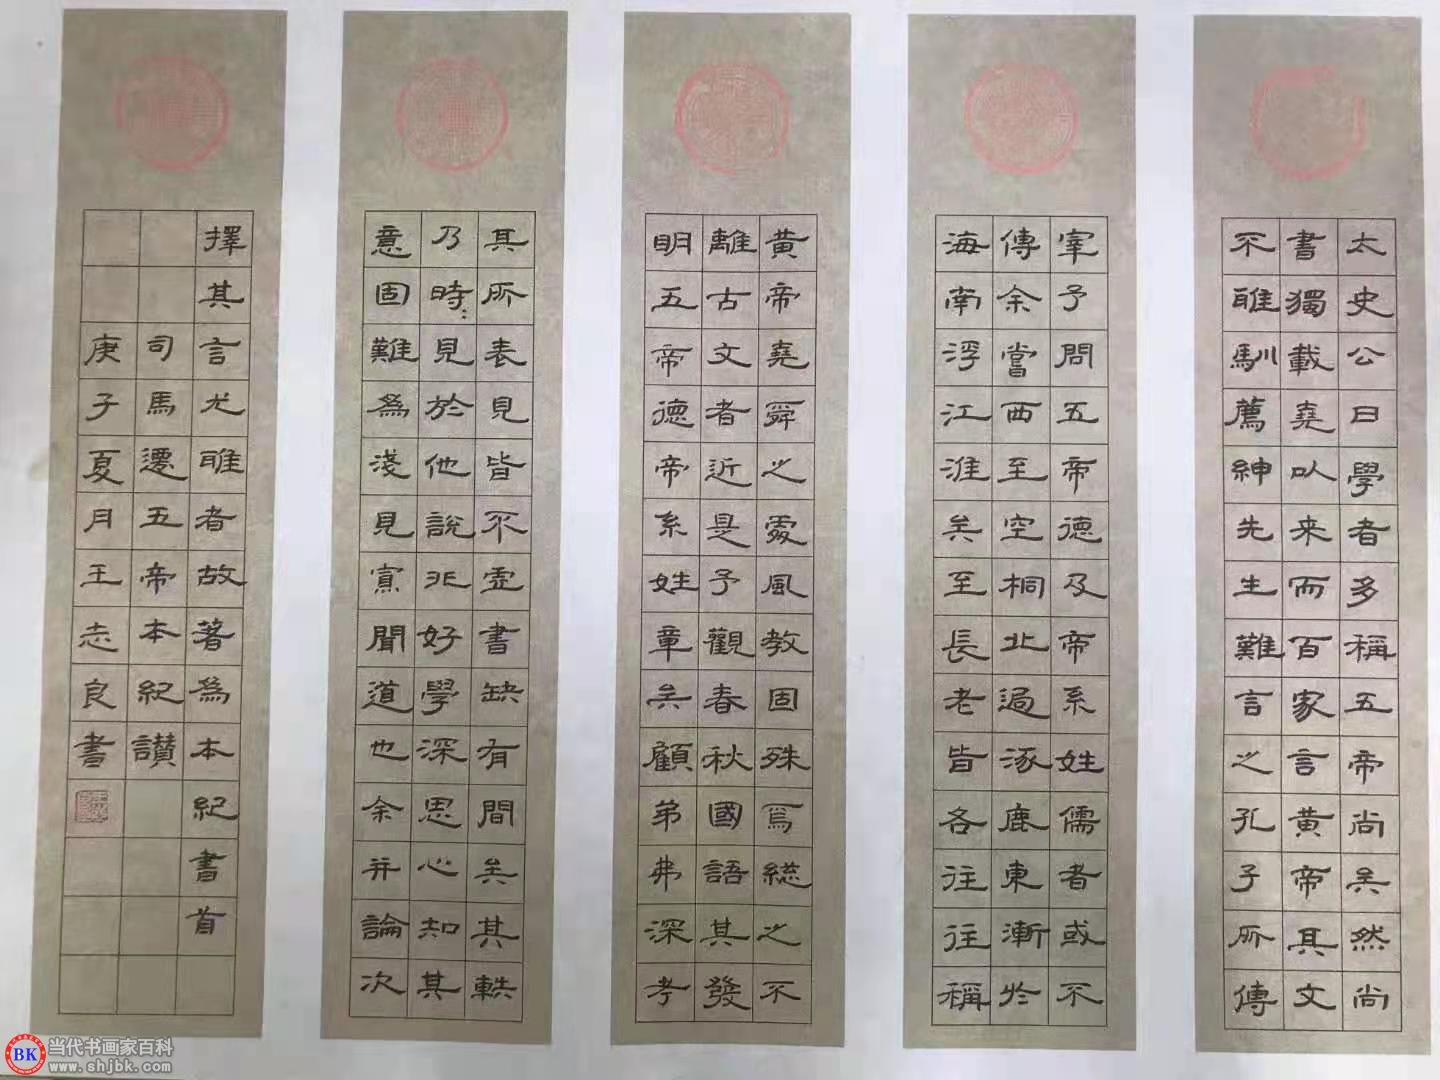 太史公曰學者多稱五帝尚矣然尚
書獨載堯以来而百家言黄帝其文
不雅馴薦紳先生難言之孔子所傳
宰予問五帝德及帝系姓儒者或不
傳余嘗西至空桐北過涿鹿東漸於
海南浮江淮矣至長老皆各往往稱
黄帝堯舜之處風教固殊焉総之不
離古文者近是予觀春秋國語其發
明五帝德帝系姓章矣顧弟弗深考
其所表見皆不虛書缺有間矣其軼
乃時:見於他說非好學深思心知其
意固難爲淺見寡聞道也余并論次
擇其言尤雅者故著爲本紀書首
司馬遷五帝本紀讃
庚子夏月王志良書
BK 当代书画家百科
www.shjbk.com